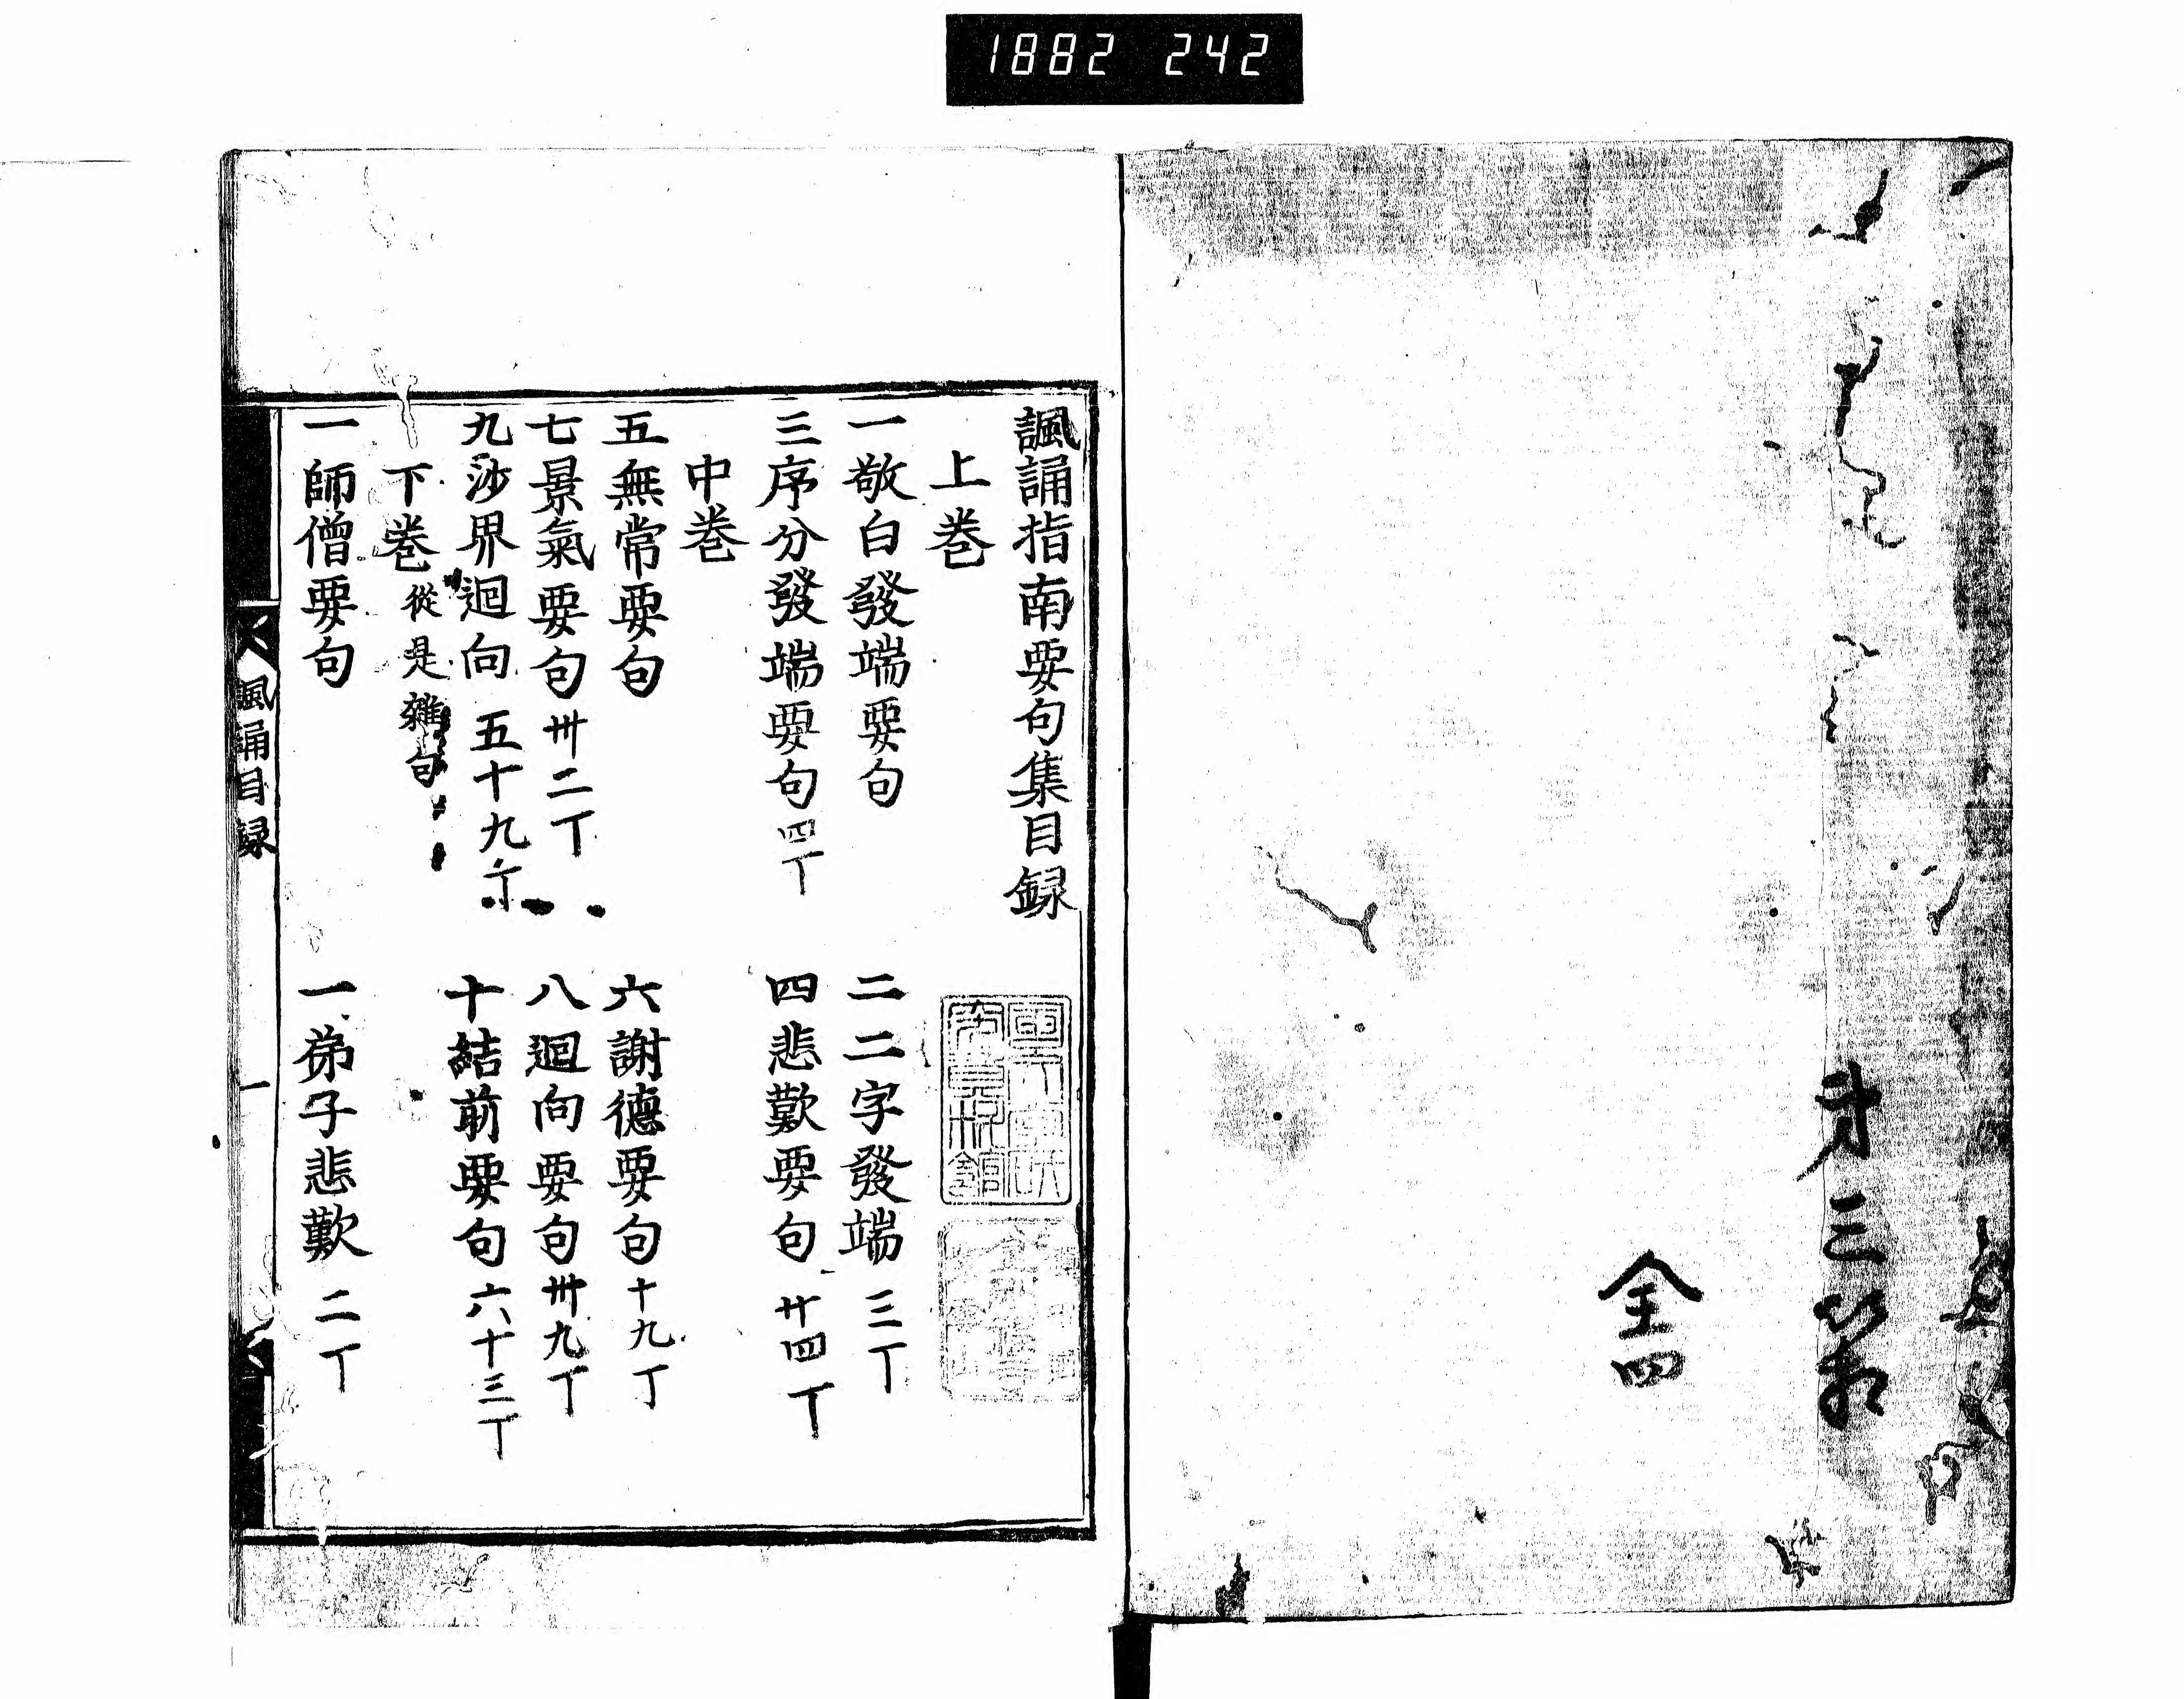 1882 242
㐧三箱
全四
諷誦指南要句集目録
上巻
一敬白發端要句 二二字發端 三丁
三序分發端要句 四丁 四悲歎要句 廿四丁
中巻
五無常要句 六謝德要句 十九丁
七景氣要句 卅二丁 八迴向要句 卅九丁
九沙界迴向 五十九丁 十結前要句 六十三丁
下巻 從是雜句
一師僧要句 一弟子悲歎 二丁
諷誦目録 一